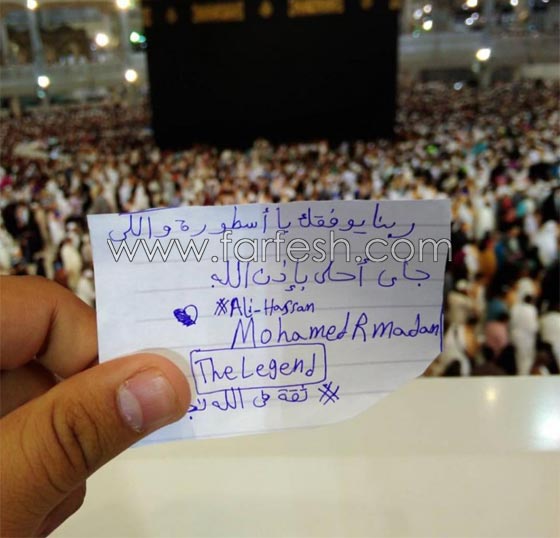 ربنا يوفقك يا أسطورة واللي
www.farfesh.com
جاي أحلى بإذن الله
#Ali-Hassan
Mohamed Rmadan
The Legend
# ثقة في الله